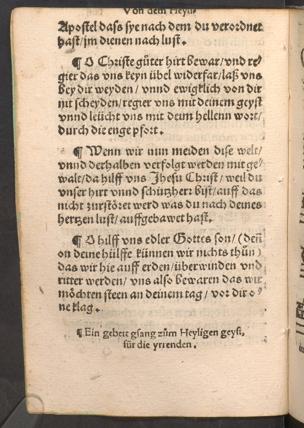 Von dem Heyli-
Apostel dass sye nach dem du verordnet
hast/jm dienen nach lust.
¶ O Christe gůter hirt bewar/vnd re-
gier das vns keyn übel widerfar/laß vns
bey dir weyden/vnnd ewigklich von dir
nit scheyden/regier vns mit deinem geyst
vnnd leücht vns mit deim hellenn wort/
durch die enge pfort.
¶ Wenn wir nun meiden dise welt/
vnnd derhalben verfolgt werden mit ge-
walt/da hilff vns Jhesu Christ/weil du
vnser hirt vnnd schützherr bist/auff das
nicht zurstöret werd was du nach deines
hertzen lust/auffgebawet hast.
¶ O hilff vns edler Gottes son/(deñ
on deine hülffe künnen wir nichts thůn)
das wir hie auff erden/überwinden vnd
ritter werden/vns also bewaren das wir
möchten steen an deinem tag/vor dir o-
ne klag.
¶ Ein gebett gsang zům Heyligen geyst,
für die yrrenden.